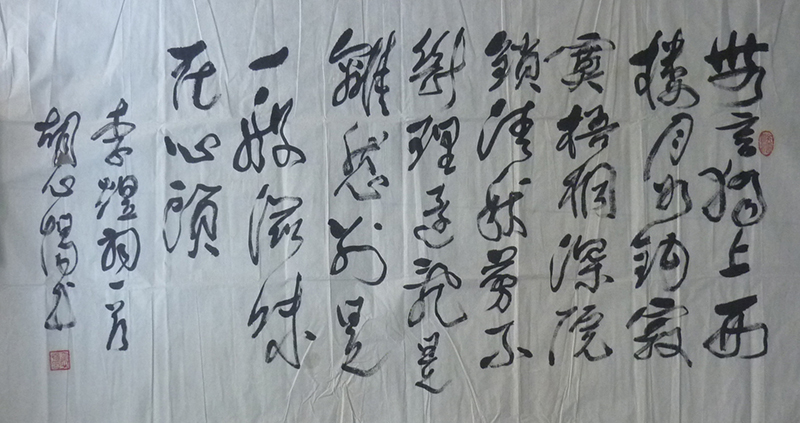 無言獨上西
樓月如鈎寂
寞梧桐深院
鎖清秋剪不
斷理還亂是
離愁别是
一般滋味
在心頭
李煜詞一首
胡心書